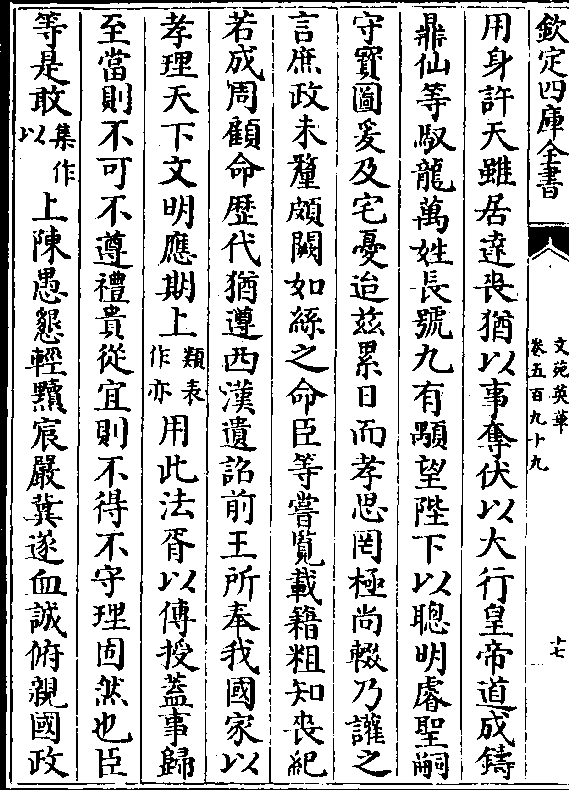 欽定四庫全書
文苑英華
卷五百九十九
十七
用身許天雖居達喪猶以事奪伏以大行皇帝道成鑄
鼎仙等馭龍萬姓長號九有顒望陛下以聰明睿聖嗣
守寳圖爰及宅憂迨兹累日而孝思罔極尚輟乃讙之
言庶政未釐頗闕如綸之命臣等嘗覧載籍粗知喪紀
若成周顧命歴代猶遵西漢遺詔前王所奉我國家以
孝理天下文明應期上類表作亦用此法胥以傳授葢事歸
至當則不可不遵禮貴從宜則不得不守理固然也臣
等是敢集作以上陳愚懇輕黷宸嚴冀遂血誠俯親國政